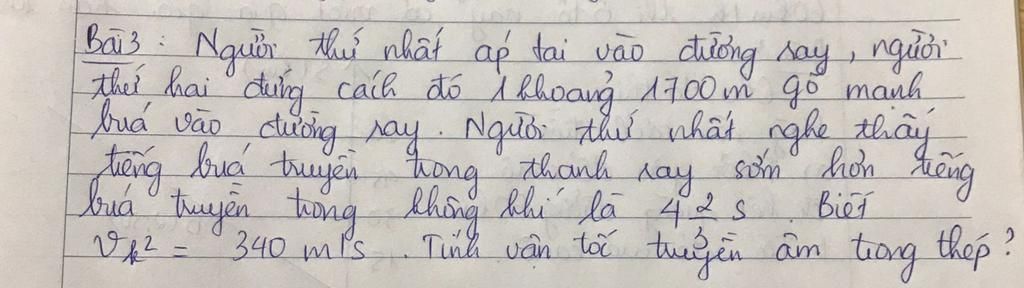 Bài 3 : Người thứ nhất áp tai vào đường ray, người
thứ hai đứng cách đó 1 khoảng 1700 m gõ mạnh
búa vào đường ray. Người thứ nhất nghe thấy
tiếng búa truyền trong thanh ray sớm hơn tiếng
búa truyền trong không khí là 4 2/3 s. Biết
vk² = 340 m/s. Tính vận tốc truyền âm trong thép?